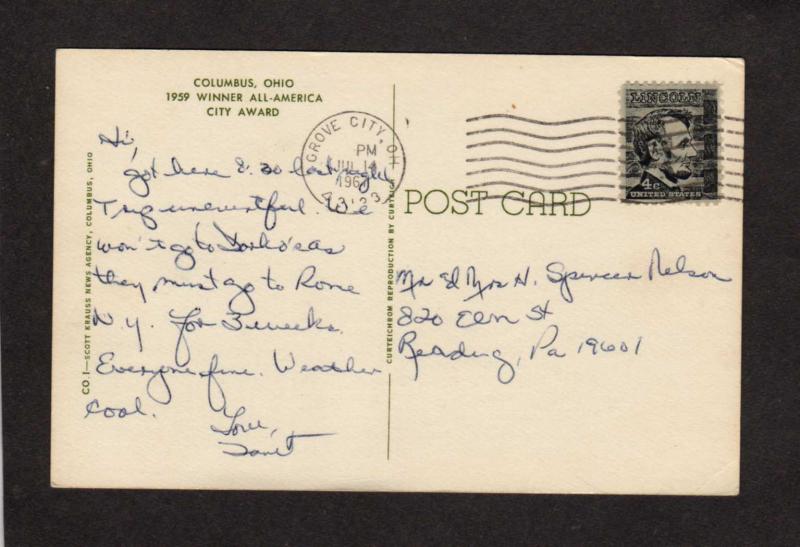 COLUMBUS, OHIO
1959 WINNER ALL-AMERICA
CITY AWARD
Hi,
got here 8:30 last night
Trip uneventful. We
won't go to as
they must go to Rome
N.Y. for 3 weeks.
Everyone fine. Weather
cool.
Love,
Janet
CO.1—SCOTT KRAUSS NEWS AGENCY, COLUMBUS, OHIO
CURTEICHROM REPRODUCTION BY CURTEICH
GROVE CITY, OH
PM
JUL 14
196
43123
LINCOLN
4c
UNITED STATES
POST CARD
Mr & Mrs H. Spencer Nelson
820 Elm St
Reading, Pa 19601